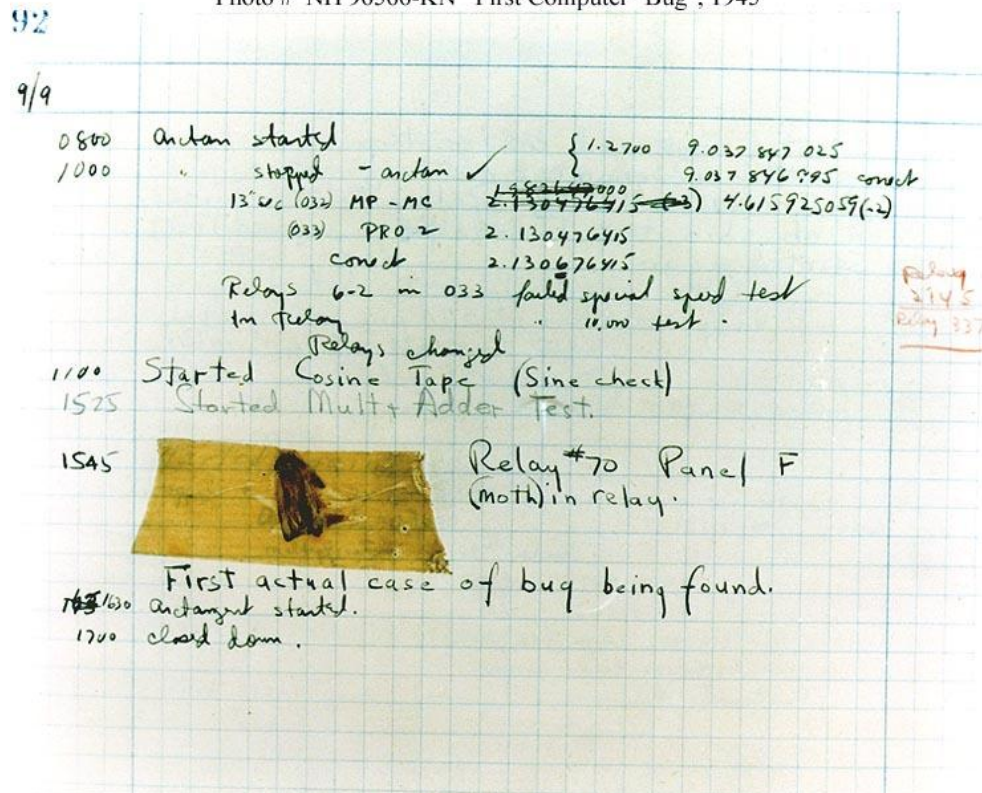 Photo # NH 96566-KN "First Computer "Bug", 1945
92
9/9
0800 Antan started
1000 " stopped - antan ✓ { 1.2700 9.037 847 025
9.037 846 995 conect
13"uc (032) MP - MC 2.130476415 (-3) 4.615925059(-2)
(033) PRO 2 2.130476415
conect 2.130676415
Relays 6-2 in 033 failed special speed test
In relay " 10,000 test .
Relays changed
Relay
2145
Relay 337
1100 Started Cosine Tape (Sine check)
1525 Started Mult + Adder Test.
1545 Relay #70 Panel F
(moth) in relay.
First actual case of bug being found.
1630 antangent started.
1700 closed down.